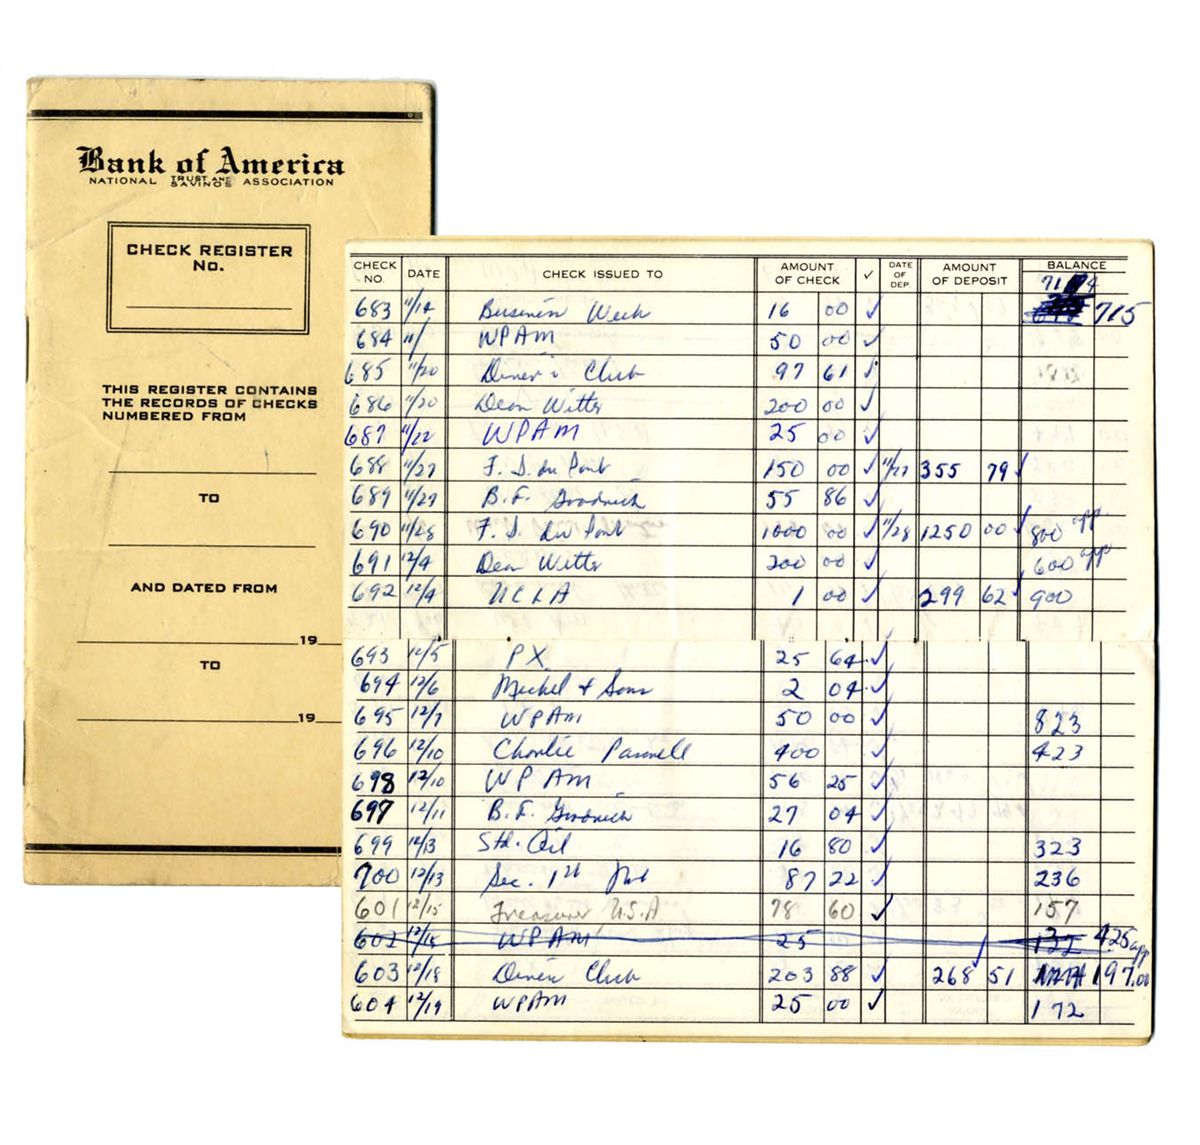 Bank of America
NATIONAL TRUST AND SAVINGS ASSOCIATION
CHECK REGISTER
No.
THIS REGISTER CONTAINS
THE RECORDS OF CHECKS
NUMBERED FROM
TO
AND DATED FROM
19
TO
19
CHECK NO. DATE CHECK ISSUED TO AMOUNT OF CHECK ✓ DATE OF DEP. AMOUNT OF DEPOSIT BALANCE
683 11/14 Business Week 16 00 ✓ 715
684 11/ WPAM 50 00 ✓
685 11/20 Diner's Club 97 61 ✓
686 11/20 Dean Witter 200 00 ✓
687 11/22 WPAM 25 00 ✓
688 11/27 F. I. du Pont 150 00 ✓ 11/27 355 79 ✓
689 11/27 B.F. Goodrich 55 86 ✓
690 11/28 F. I. du Pont 1000 00 ✓ 11/28 1250 00 ✓ 800 app.
691 12/4 Dean Witter 200 00 ✓ 600 app
692 12/4 UCLA 1 00 ✓ 299 62 ✓ 900
693 12/5 PX 25 64 ✓
694 12/6 & Sons 2 04 ✓
695 12/7 WPAM 50 00 ✓ 823
696 12/10 Charlie 400 ✓ 423
698 12/10 WPAM 56 25 ✓
697 12/11 B.F. Goodrich 27 04 ✓
699 12/13 Std. Oil 16 80 ✓ 323
700 12/13 Sec. 1st Nat 87 22 ✓ 236
601 12/15 Treasurer U.S.A 78 60 ✓ 157
602 12/18 WPAM 25 132 425 app
603 12/18 Diners Club 203 88 ✓ 268 51 ✓ 197.00
604 12/19 WPAM 25 00 ✓ 172